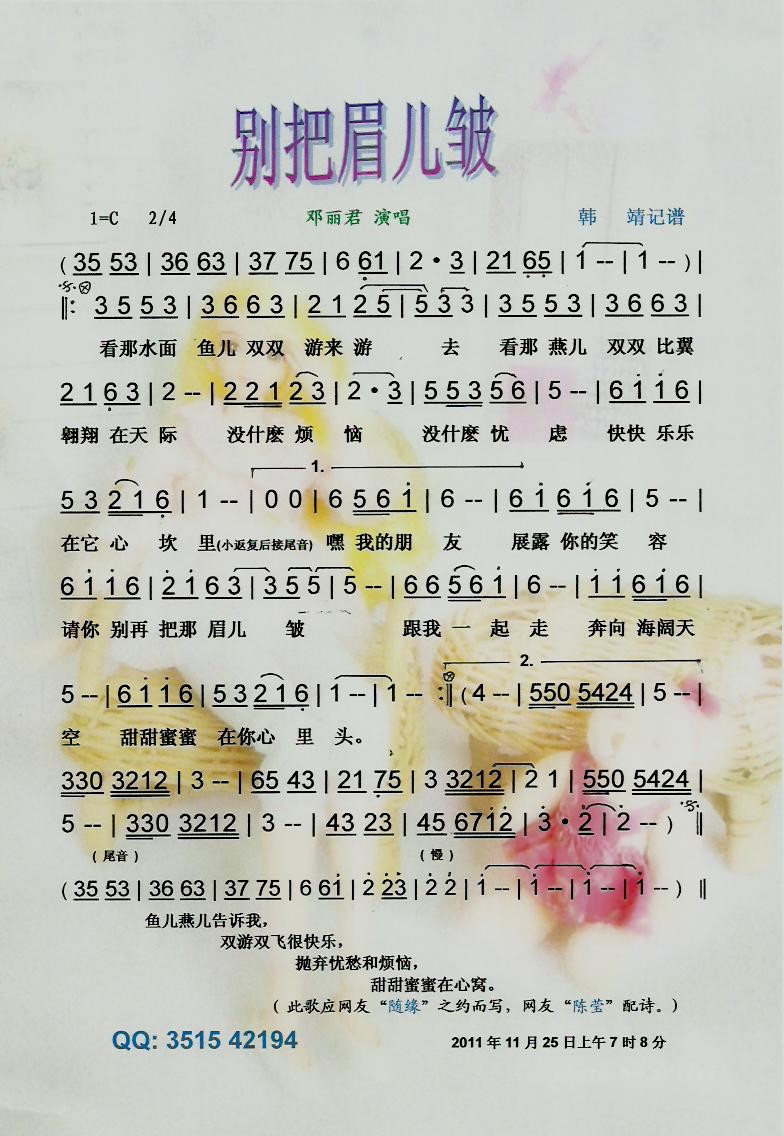 别把眉儿皱
1=C 2/4 邓丽君 演唱 韩 靖记谱
( 35 53 | 36 63 | 37 75 | 6 61 | 2 · 3 | 21 65 | 1 -- | 1 -- ) |
||: 3 5 5 3 | 3 6 6 3 | 2 1 2 5 | 5 3 3 | 3 5 5 3 | 3 6 6 3 |
看那水面 鱼儿 双双 游来 游 去 看那 燕儿 双双 比翼
2 1 6 3 | 2 -- | 2 2 1 2 3 | 2 · 3 | 5 5 3 5 6 | 5 -- | 6 1 1 6 |
翱翔 在天 际 没什麽 烦 恼 没什麽 忧 虑 快快 乐乐
1.
5 3 2 1 6 | 1 -- | 0 0 | 6 5 6 1 | 6 -- | 6 1 6 1 6 | 5 -- |
在它 心 坎 里(小返复后接尾音) 嘿 我的朋 友 展露 你的笑 容
6 1 1 6 | 2 1 6 3 | 3 5 5 | 5 -- | 6 6 5 6 1 | 6 -- | 1 1 6 1 6 |
请你 别再 把那 眉儿 皱 跟我 一 起 走 奔向 海阔天
2.
5 -- | 6 1 1 6 | 5 3 2 1 6 | 1 -- | 1 -- :|| ( 4 -- | 550 5424 | 5 -- |
空 甜甜蜜蜜 在你心 里 头。
330 3212 | 3 -- | 65 43 | 21 75 | 3 3212 | 2 1 | 550 5424 |
5 -- | 330 3212 | 3 -- | 43 23 | 45 6712 | 3 · 2 | 2 -- ) ||
( 尾音 ) ( 慢 )
( 35 53 | 36 63 | 37 75 | 6 61 | 2 23 | 2 2 | 1 -- | 1 -- | 1 -- | 1 -- ) ||
鱼儿燕儿告诉我，
双游双飞很快乐，
抛弃忧愁和烦恼，
甜甜蜜蜜在心窝。
( 此歌应网友“随缘”之约而写，网友“陈莹”配诗。)
QQ: 3515 42194 2011年11月25日上午7时8分